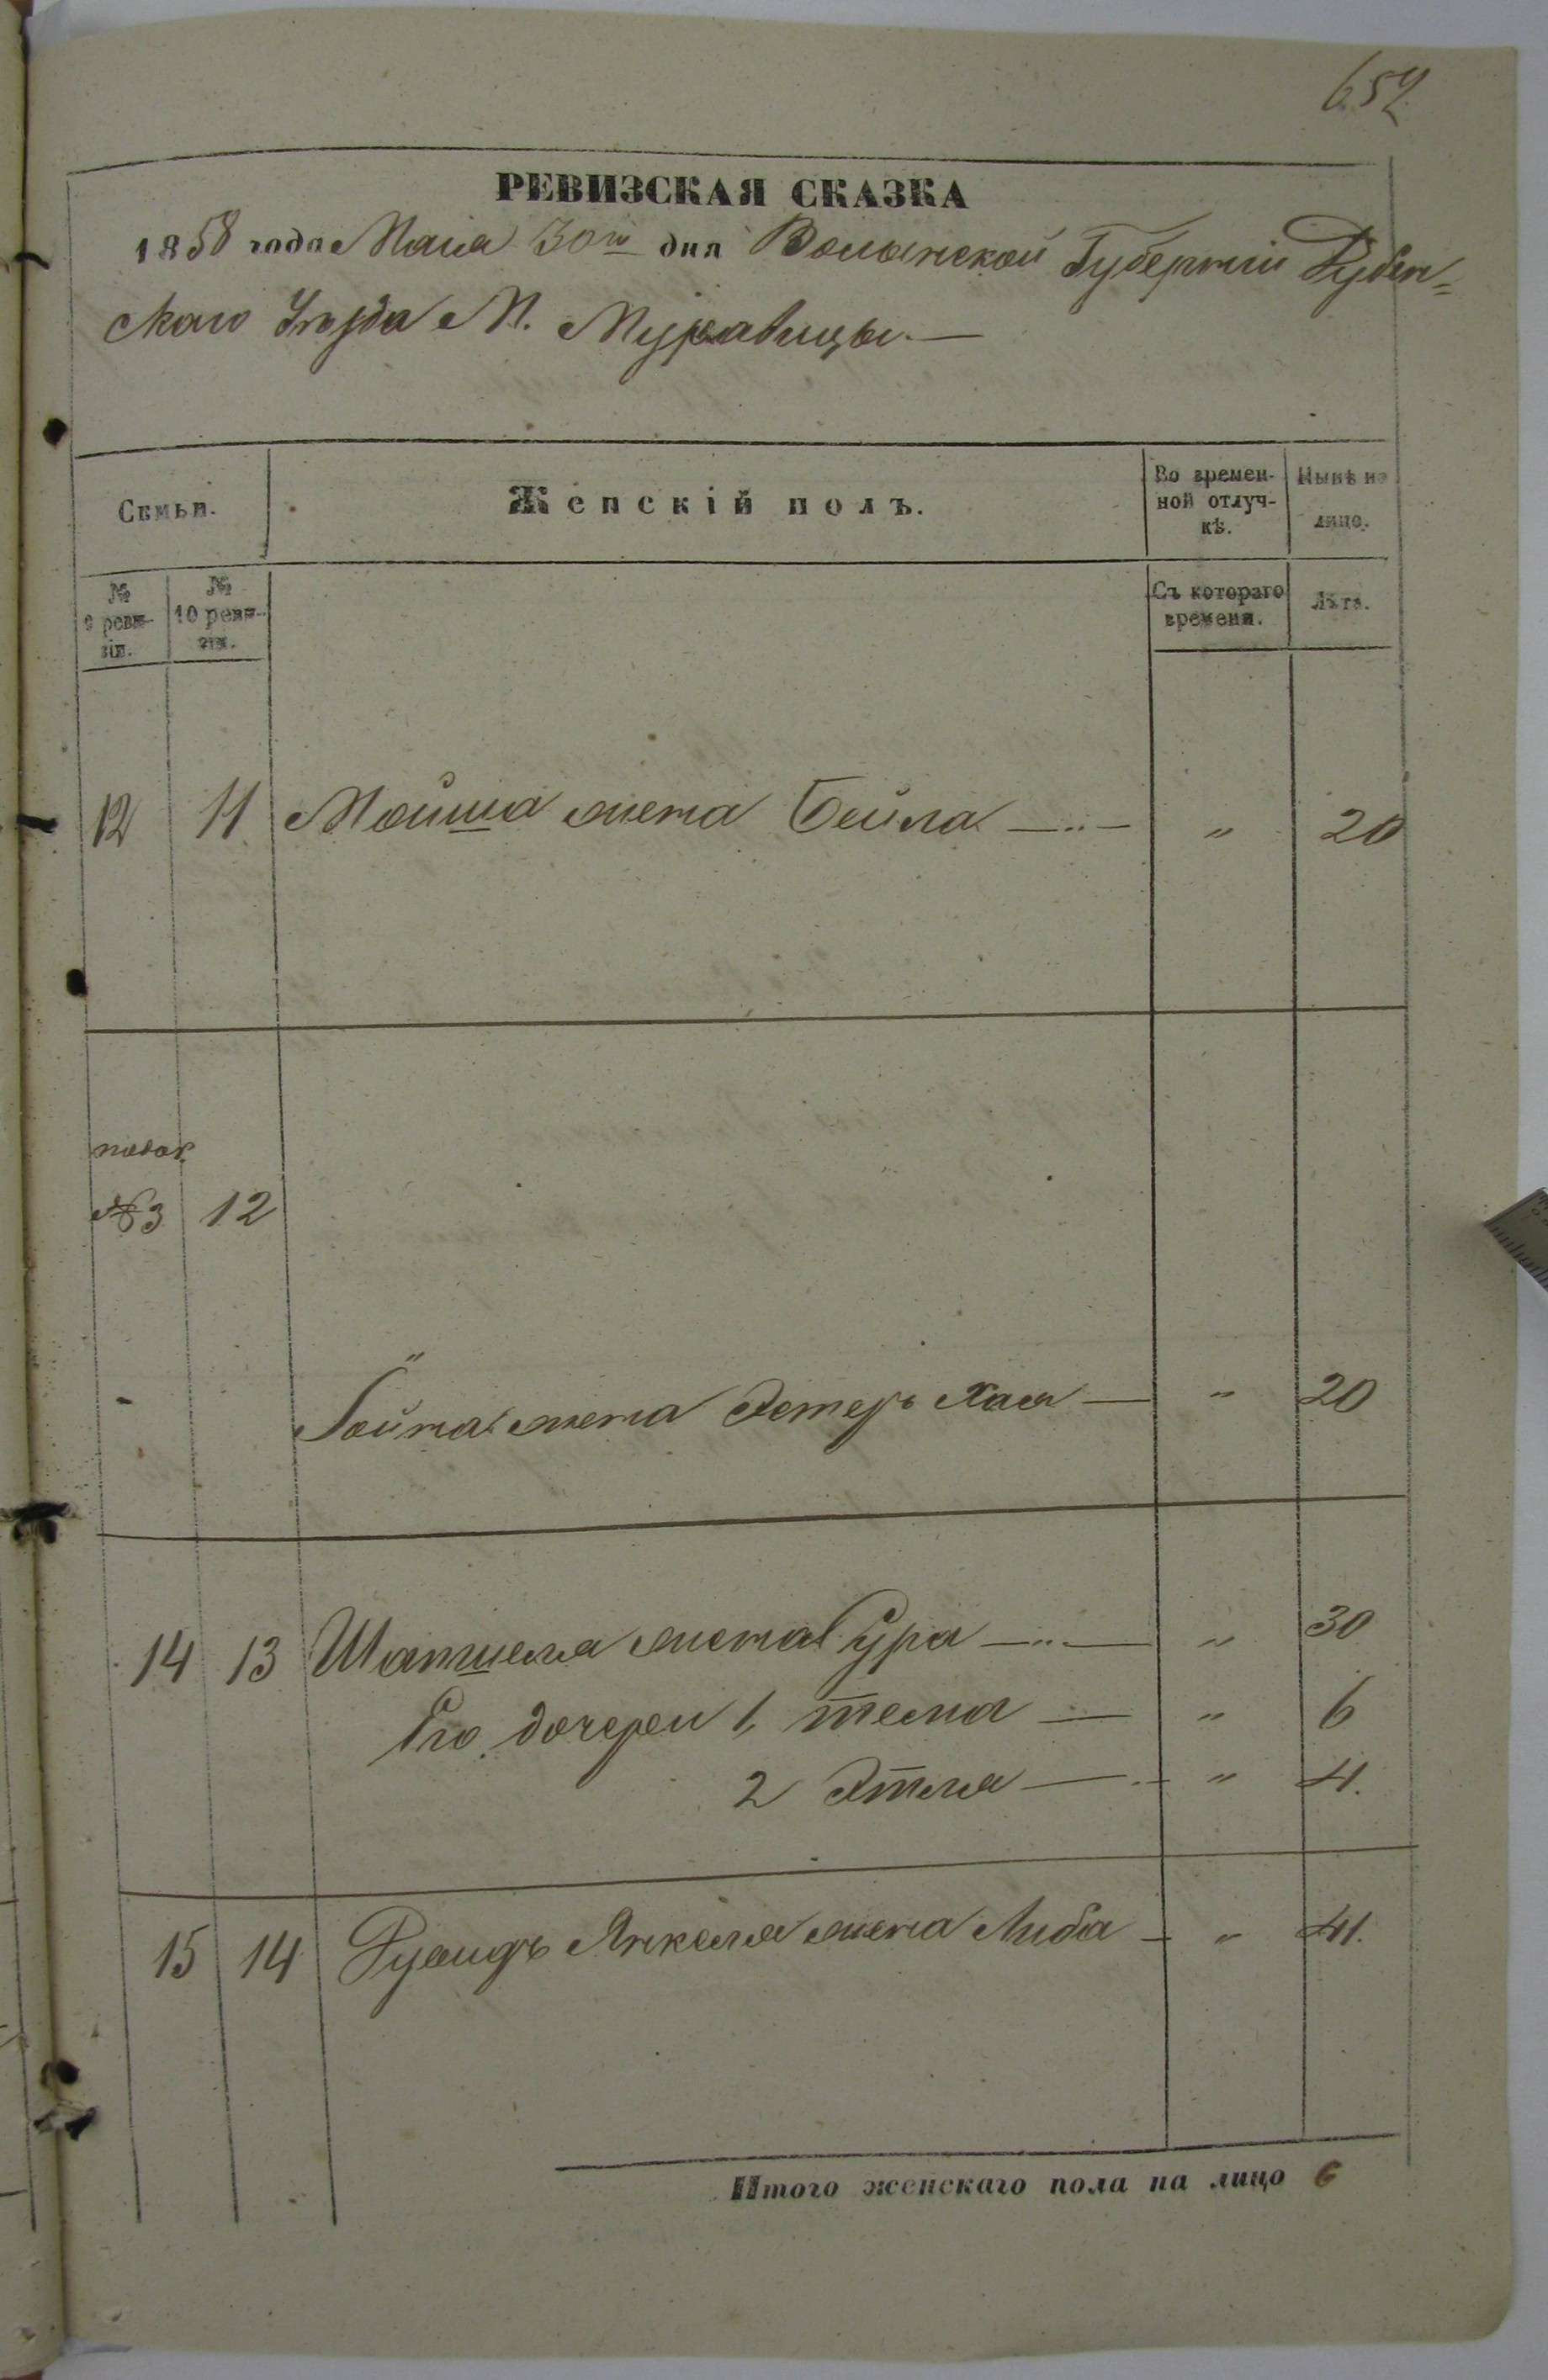 652
РЕВИЗСКАЯ СКАЗКА
1858 года Мая 30го дня Волынской Губерніи Дубен=
скаго Уѣзда М. Муравицы.—
Семьи.
Женскій полъ.
Во времен-
ной отлуч-
кѣ.
Нынѣ на
лицо.
№
9 реви-
зіи.
№
10 реви-
зіи.
Съ котораго
времени.
Лѣта.
12 11 Мойша жена Бейла — " 20
№3 12
жена Эстеръ Хая — " 20
14 13 жена Сура — " 30
Его дочери 1, — " 6
2 Этля — " 4.
15 14 Янкеля жена Либа — " 41.
Итого женскаго пола на лицо 6